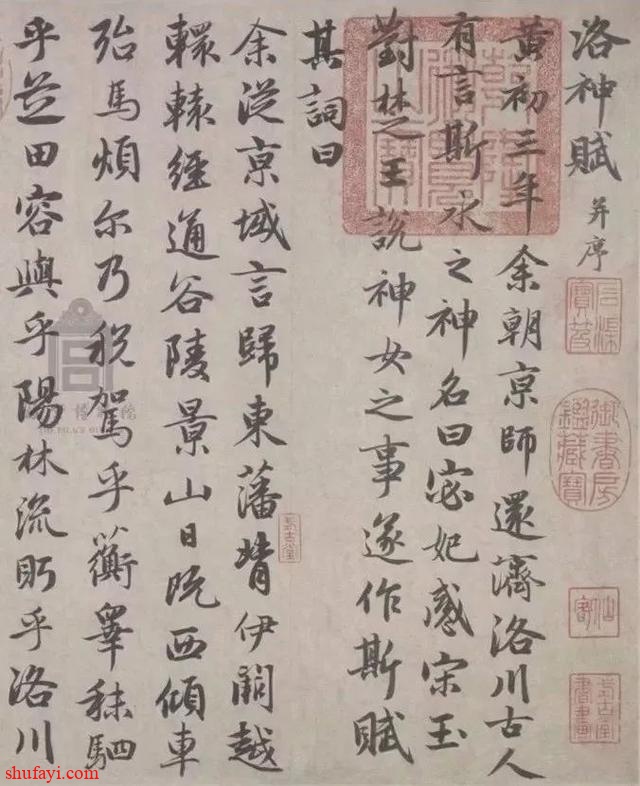 洛神賦 并序
黃初三年余朝京師還濟洛川古人
有言斯水之神名曰宓妃感宋玉
對楚王說神女之事遂作斯賦
其詞曰
余從京域言歸東藩背伊闕越
轘轅經通谷陵景山日既西傾車
殆馬煩尔乃税駕乎蘅皋秣駟
乎芝田容與乎陽林流眄乎洛川
石渠寶笈
御書房鑑藏寶
shufayi.com